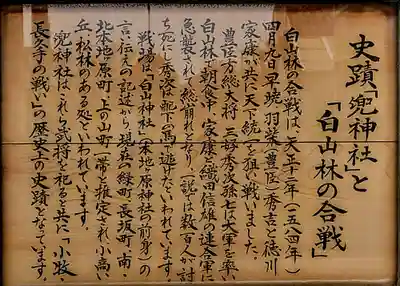 史蹟「兜神社」と
「白山林の合戦」
白山林の合戦は、天正十二年(一五八四年)
四月九日早暁、羽柴(豊臣)秀吉と徳川
家康が共に天下統一を狙い戦いました。
豊臣方の総大将 三好秀次孫七は大軍を率い
白山林で朝食中、家康と織田信雄の連合軍に
急襲されて総崩れとなり、一説では数百人が討
ち死にし秀次は配下の馬で逃げたといわれています。
戦場は「白山神社」(本地ヶ原神社の前身)の
言い伝えの記述から、現在の緑町・長坂町・南・
北本地ヶ原町・上の山町一帯と推定され、小高い
丘、松林のある処といわれています。
兜神社は、これら武将を祀ると共に「小牧・
長久手の戦い」の歴史上の史蹟となっています。